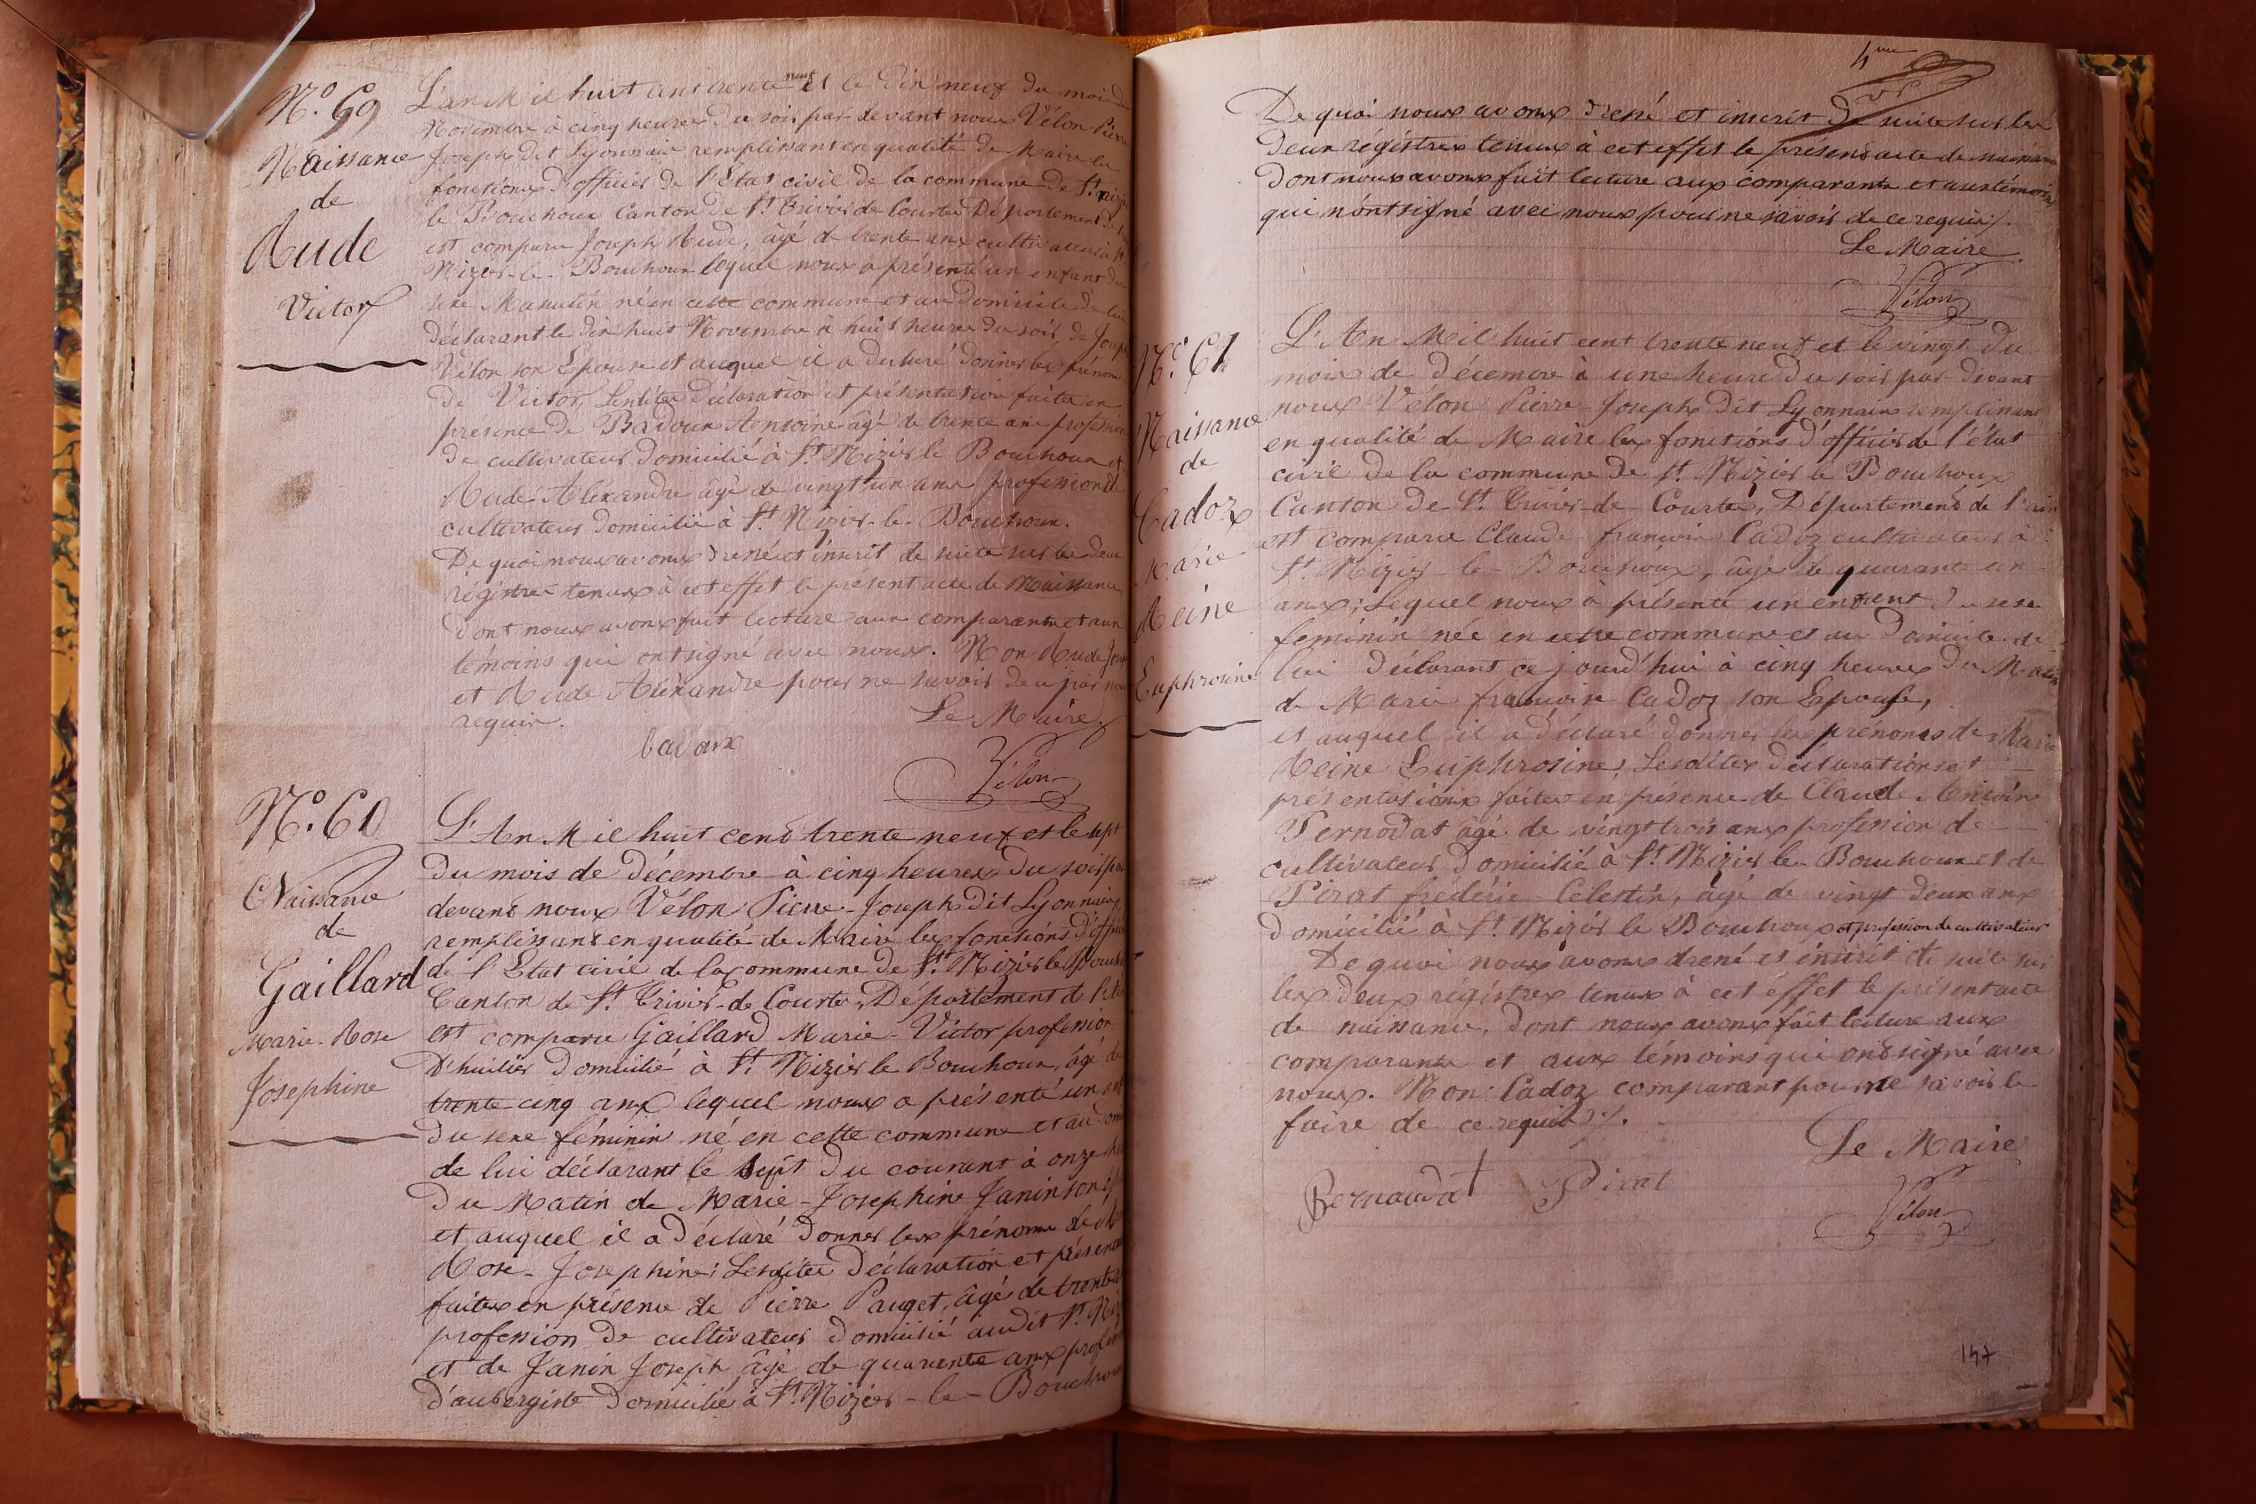 No. 59
Naissance
de
Rude
Victor
L'an Mil huit cent trente neuf et le dix neuf du mois de
Novembre à cinq heures du soir par devant nous Vélon Pierre
Joseph dit Lyonnais remplissant en qualité de Maire les
fonctions d'officier de l'Etat civil de la commune de St. Nizier
le Bouchoux Canton de St. Trivier de Courtes Département de
est comparu Joseph Rude, âgé de trente ans cultivateur à St
Nizier-le-Bouchoux lequel nous a présenté un enfant du
sexe Masculin né en cette commune et au domicile de lui
déclarant le dix huit Novembre à huit heures du soir, de
Vélon son Epouse et auquel il a declaré donner les prénoms
de Victor, Lesdites déclaration et présentation faites en
présence de Badoux Antoine âgé de trente ans profession
de cultivateur domicilié à St. Nizier le Bouchoux et
Rude Aléxandre âgé de vingt un ans profession de
cultivateur domicilié à St. Nizier-le-Bouchoux.
De quoi nous avons dressé et inscrit de suite sur les deux
régistres tenus à cet effet le présent acte de Naissance
dont nous avons fait lecture aux comparants et aux
témoins qui ont signé avec nous. Non Rude Joseph
et Rude Aléxandre pour ne savoir de ce par nous
requis.
Le Maire
Vélon
No. 60
Naissance
de
Gaillard
Marie-Rose
Josephine
L'An Mil huit cent trente neuf et le sept
du mois de décembre à cinq heures du soir par
devant nous Vélon Pierre-Joseph dit Lyonnais,
remplissant en qualité de Maire les fonctions d'officier
de l'Etat civil de la commune de St. Nizier le Bouchoux
Canton de St. Trivier-de Courtes, Département de l'Ain
est comparu Gaillard Marie-Victor profession
d'huilier domicilié à St. Nizier le Bouchoux, âgé de
trente cinq ans lequel nous a présenté un
du sexe féminin né en cette commune et au
de lui déclarant le sept du courant à onze
du Matin de Marie-Josephine Janin son
et auquel il a déclaré donner les prénoms de
Rose-Josephine; Lesdites déclaration et
faites en présence de Pierre Pauget, âgé de trente
profession de cultivateur domicilié audit St. Nizier
et de Janin Joseph, âgé de quarante ans profession
d'aubergiste domicilié à St. Nizier-le-Bouchoux
De quoi nous avons dressé et inscrit de suite sur les
deux régistres tenus à cet effet le présent acte de naissance
dont nous avons fait lecture aux comparants et aux témoins
qui n'ont signé avec nous pour ne savoir de ce requis./.
Le Maire
Vélon
No. 61
Naissance
de
Cadoz
Marie
Reine
Euphrosine
L'An Mil huit cent trente neuf et le vingt du
mois de décembre à une heure du soir par devant
nous Vélon Pierre-Joseph dit Lyonnais remplissant
en qualité de Maire les fonctions d'officier de l'état
civil de la commune de St. Nizier le Bouchoux
Canton de St. Trivier-de-Courtes, Département de l'ain
est comparu Claude françois Cadoz cultivateur à
St. Nizier-le-Bouchoux, âgé de quarante un
ans; Lequel nous à présenté un enfent du sexe
feminin née en cette commune et au Domicile de
lui déclarant ce jourd'hui à cinq heures du Matin
de Marie françoise Cadoz son Epouse,
et auquel il a déclaré donner les prénoms de Marie
Reine Euphrosine; Lesdites déclarations et
présentations faites en présence de Claude Antoine
Pernodat âgé de vingt trois ans profession de
cultivateur domicilié à St. Nizier le Bouchoux et de
Pirat frédéric Célestin, âgé de vingt deux ans
domicilié à St. Nizier le Bouchoux et profession de cultivateur
De quoi nous avons dressé et inscrit de suite sur
les deux régistres tenus à cet effet le présent acte
de naissance, dont nous avons fait lecture aux
comparants et aux témoins qui ont signé avec
nous. Non Cadoz comparant pour ne savoir le
faire de ce requis ./.
Le Maire
Bernaudat Pirat
Vélon
147